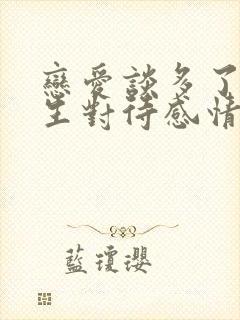 戀愛談多了
生對待感情
藍瓊瓔